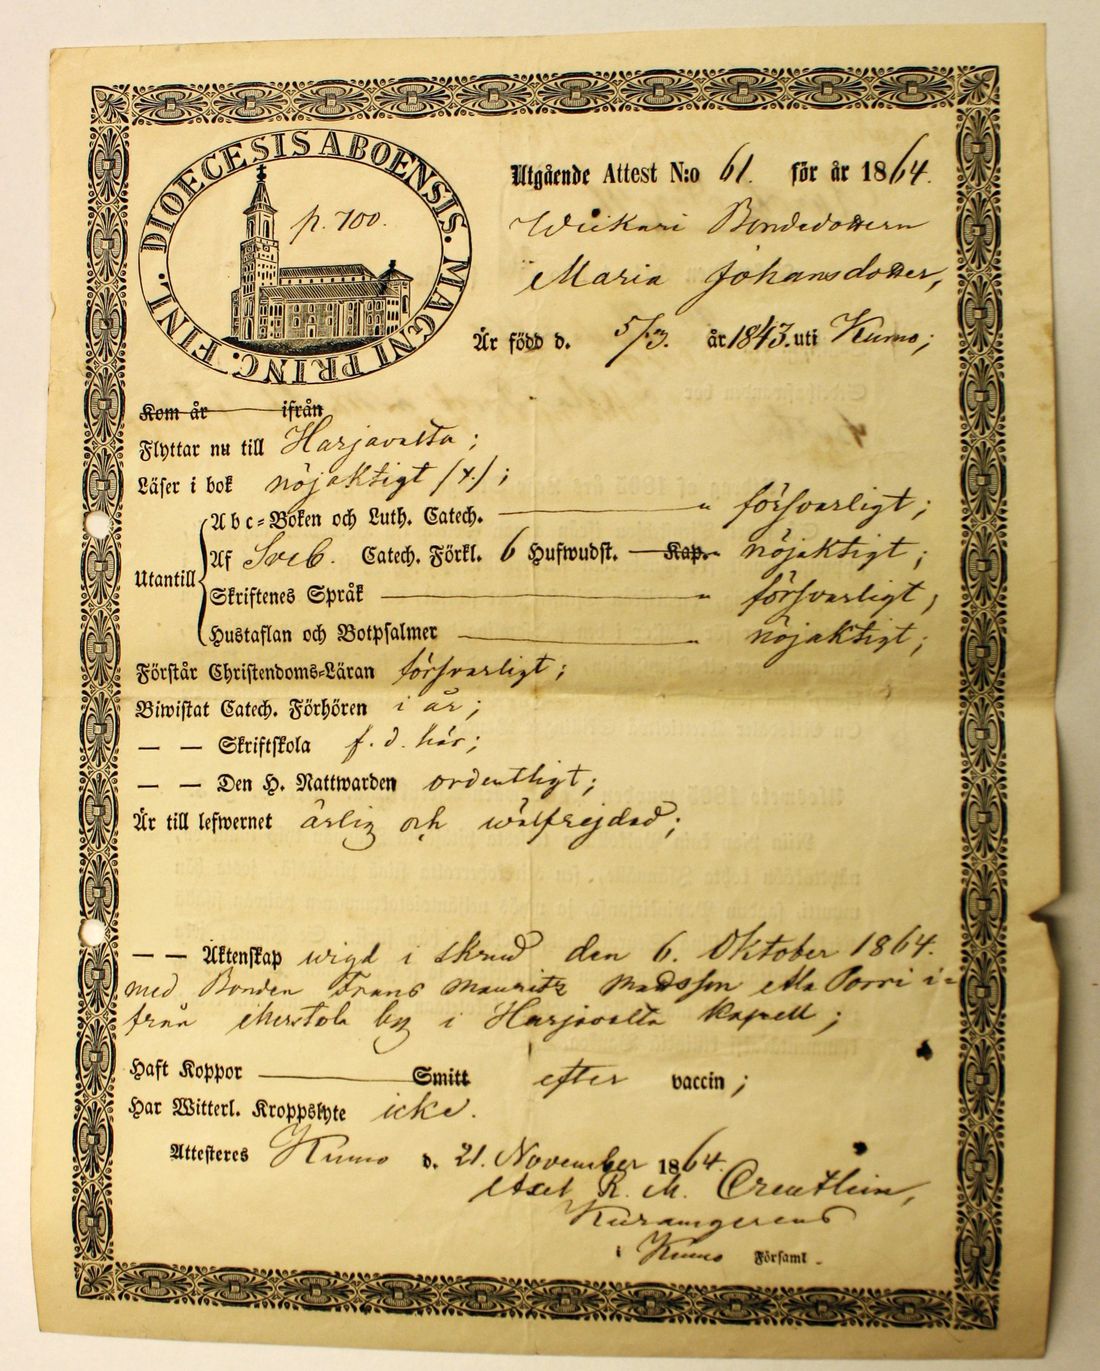 DIOECESIS ABOENSIS. MAGNI PRINC. FINL.
p. 700.
Utgående Attest N:o 61. för år 1864.
Wiikari Bondedottern
Maria Johansdotter,
Är född d. 5/3. år 1843. uti Kumo;
Kom år ifrån
Flyttar nu till Harjavalta;
Läser i bok nöjaktigt (x.);
Abc-Boken och Luth. Catech. " försvarligt;
Utantill Af Sveb. Catech. Förkl. 6 Hufwudst. Kap. nöjaktigt;
Skriftenes Språk " försvarligt;
Hustaflan och Botpsalmer " nöjaktigt;
Förstår Christendoms-Läran försvarligt;
Biwistat Catech. Förhören i år;
— — Skriftskola f. d. här;
— — Den H. Nattwarden ordentligt;
Är till lefwernet ärlig och wälfrejdad;
— — Äktenskap wigd i skrud den 6. Oktober 1864.
med Bonden Frans Mauritz Madsson Porri i-
från by i Harjavalta Kapell;
Haft Koppor Smitt efter vaccin;
Har Witterl. Kroppslyte icke.
Attesteres Kumo d. 21. November 1864.
Axel R. M. Creutlein,
i Kumo Församl.